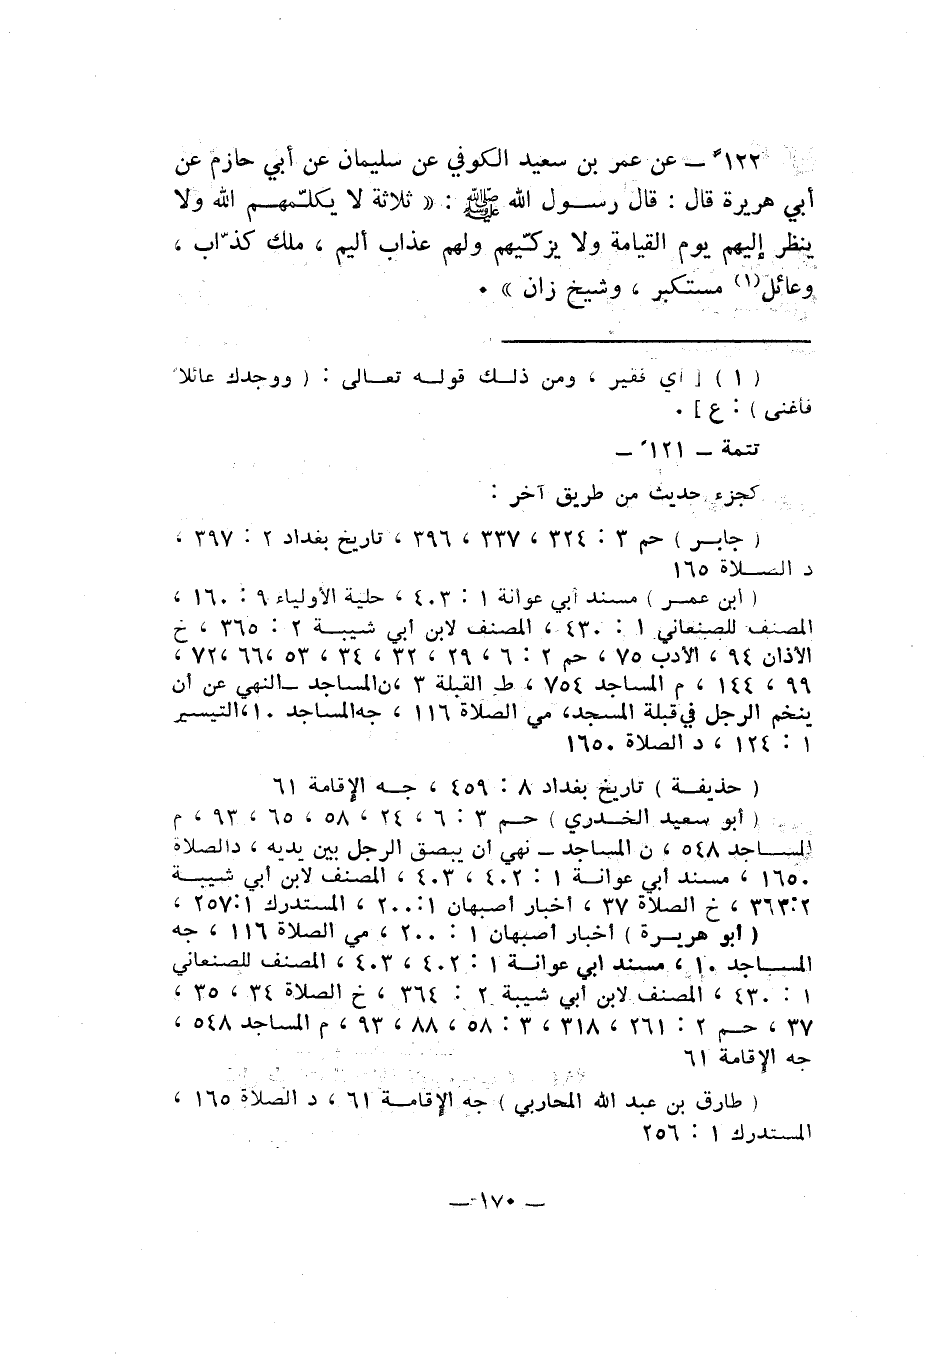 ١٢٢ً ـ عن عمر بن سعيد الكوفي عن سليمان عن أبي حازم عن
أبي هريرة قال : قال رسول الله ﷺ : « ثلاثة لا يكلّمهم الله ولا
ينظر إليهم يوم القيامة ولا يزكّيهم ولهم عذاب أليم ، ملك كذّاب ،
وعائل(١) مستكبر ، وشيخ زان » ٠
( ١ ) [ أي فقير ، ومن ذلك قوله تعالى : ( ووجدك عائلاً
فأغنى ) : ع ] ٠
تتمة ـ ١٢١ً ـ
كجزء حديث من طريق آخر :
( جابر ) حم ٣ : ٣٢٤ ، ٣٣٧ ، ٣٩٦ ، تاريخ بغداد ٢ : ٣٩٧ ،
د الصلاة ١٦٥
( ابن عمر ) مسند أبي عوانة ١ : ٤٠٣ ، حلية الأولياء ٩ : ١٦٠ ،
المصنف للصنعاني ١ : ٤٣٠ ، المصنف لابن أبي شيبة ٢ : ٣٦٥ ، خ
الأذان ٩٤ ، الأدب ٧٥ ، حم ٢ : ٦ ، ٢٩ ، ٣٢ ، ٣٤ ، ٥٣ ،٦٦ ،٧٢ ،
٩٩ ، ١٤٤ ، م المساجد ٧٥٤ ، ط القبلة ٣ ،ن المساجد ـالنهي عن أن
ينخم الرجل في قبلة المسجد، مي الصلاة ١١٦ ، جه المساجد ١٠،التيسير
١ : ١٢٤ ، د الصلاة ١٦٥٠
( حذيفة ) تاريخ بغداد ٨ : ٤٥٩ ، جه الإقامة ٦١
( أبو سعيد الخدري ) حم ٣ : ٦ ، ٢٤ ، ٥٨ ، ٦٥ ، ٩٣ ، م
المساجد ٥٤٨ ، ن المساجد ـ نهي أن يبصق الرجل بين يديه ، د الصلاة
١٦٥٠ ، مسند أبي عوانة ١ : ٤٠٢ ، ٤٠٣ ، المصنف لابن أبي شيبة
٢:٣٦٣ ، خ الصلاة ٣٧ ، أخبار أصبهان ١:٢٠٠ ، المستدرك ١:٢٥٧ ،
( أبو هريرة ) أخبار أصبهان ١ : ٢٠٠ ، مي الصلاة ١١٦ ، جه
المساجد ١٠ ، مسند أبي عوانة ١ : ٤٠٢ ، ٤٠٣ ، المصنف للصنعاني
١ : ٤٣٠ ، المصنف لابن أبي شيبة ٢ : ٣٦٤ ، خ الصلاة ٣٤ ، ٣٥ ،
٣٧ ، حم ٢ : ٢٦١ ، ٣١٨ ، ٣ : ٥٨ ، ٨٨ ، ٩٣ ، م المساجد ٥٤٨ ،
جه الإقامة ٦١
( طارق بن عبد الله المحاربي ) جه الإقامة ٦١ ، د الصلاة ١٦٥ ،
المستدرك ١ : ٢٥٦
ـ ١٧٠ ـ